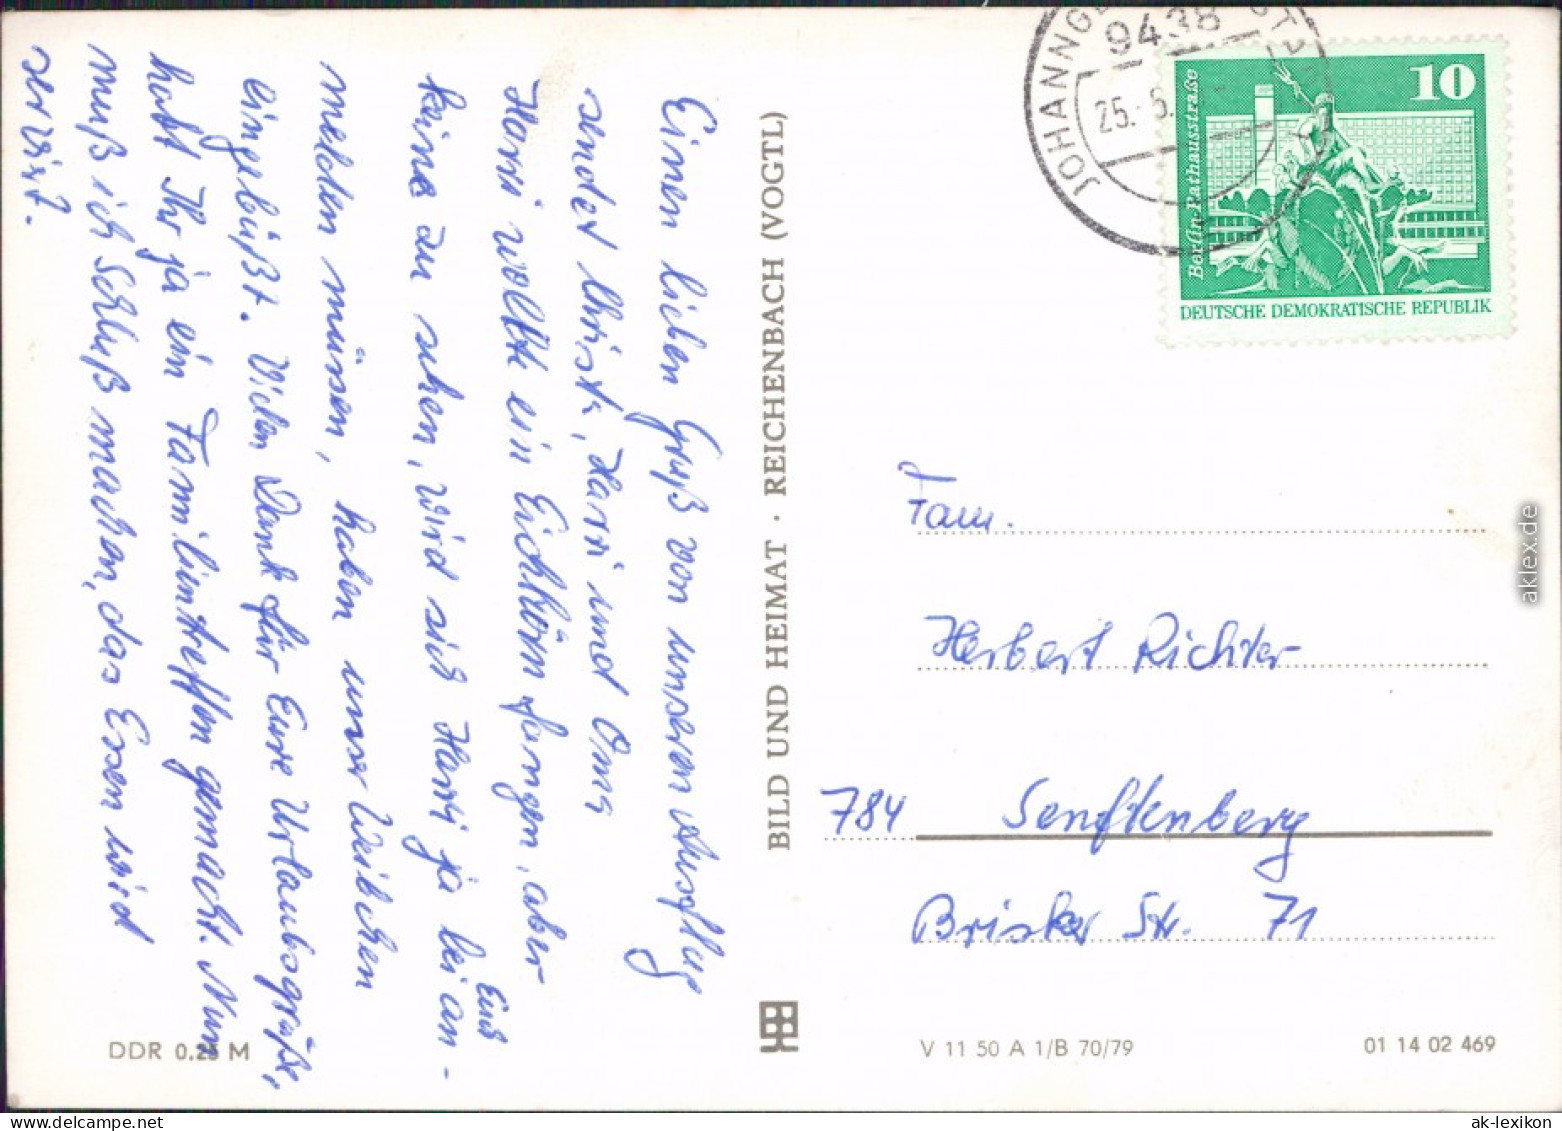 Einen lieben Gruß von unserem Ausflug
sendet Christ, Harri und Oma
Harri wollte ein Eichhörn fangen, aber
keine zu sehen, wird sich Harri ja bei Euch an-
melden müssen, haben unser Weibchen
eingebüßt. Vielen Dank für Eure Urlaubsgrüße,
habt Ihr ja ein Familientreffen gemacht. Nun
muß ich Schluß machen, das Essen wird
serviert.
DDR 0.25 M
BILD UND HEIMAT · REICHENBACH (VOGTL)
9438
25. 6.
10
Berlin-Rathausstraße
DEUTSCHE DEMOKRATISCHE REPUBLIK
Fam.
Herbert Richter
784 Senftenberg
Briesker Str. 71
V 11 50 A 1/B 70/79
01 14 02 469
aklex.de
ak-lexikon